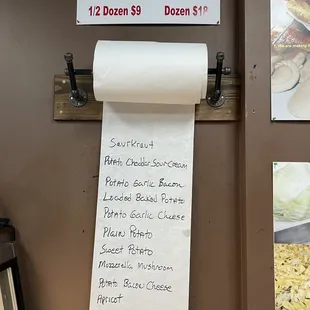 1/2 Dozen $9 Dozen $18
Saurkraut
Potato Cheddar Sour Cream
Potato Garlic Bacon
Loaded Baked Potato
Potato Garlic Cheese
Plain Potato
Sweet Potato
Mozzarella Mushroom
Potato Bacon Cheese
Apricot